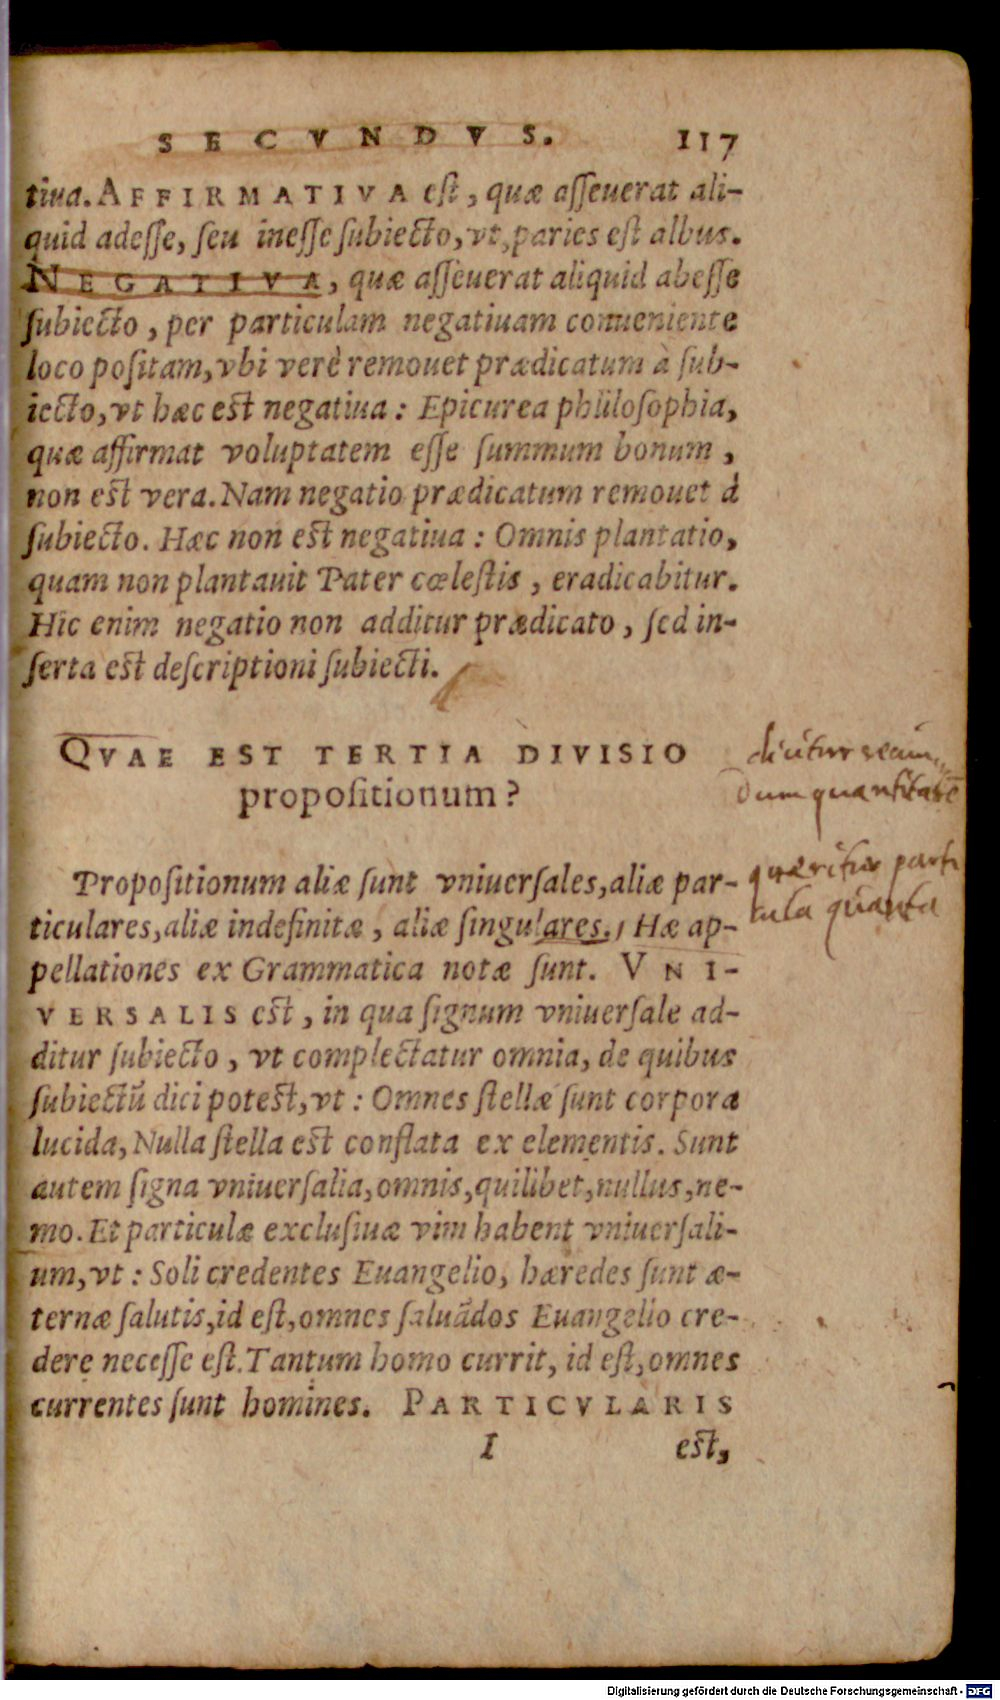 SECVNDVS. 117
tiua. AFFIRMATIVA est, quæ asseuerat ali-
quid adesse, seu inesse subiecto, vt, paries est albus.
NEGATIVA, quæ asseuerat aliquid abesse
subiecto, per particulam negatiuam conueniente
loco positam, vbi verè remouet prædicatum à sub-
iecto, vt hæc est negatiua: Epicurea philosophia,
quæ affirmat voluptatem esse summum bonum,
non est vera. Nam negatio prædicatum remouet à
subiecto. Hæc non est negatiua: Omnis plantatio,
quam non plantauit Pater cœlestis, eradicabitur.
Hic enim negatio non additur prædicato, sed in-
serta est descriptioni subiecti.
QVAE EST TERTIA DIVISIO
propositionum?
diuitur secun
dum quantitatē
Propositionum aliæ sunt vniuersales, aliæ par-
ticulares, aliæ indefinitæ, aliæ singulares. Hæ ap-
quæritur parti
cula quanta
pellationes ex Grammatica notæ sunt. VNI-
VERSALIS est, in qua signum vniuersale ad-
ditur subiecto, vt complectatur omnia, de quibus
subiectū dici potest, vt: Omnes stellæ sunt corpora
lucida, Nulla stella est conflata ex elementis. Sunt
autem signa vniuersalia, omnis, quilibet, nullus, ne-
mo. Et particulæ exclusiuæ vim habent vniuersali-
um, vt: Soli credentes Euangelio, hæredes sunt æ-
ternæ salutis, id est, omnes saluādos Euangelio cre-
dere necesse est. Tantum homo currit, id est, omnes
currentes sunt homines. PARTICVLARIS
I est,
Digitalisierung gefördert durch die Deutsche Forschungsgemeinschaft - DFG